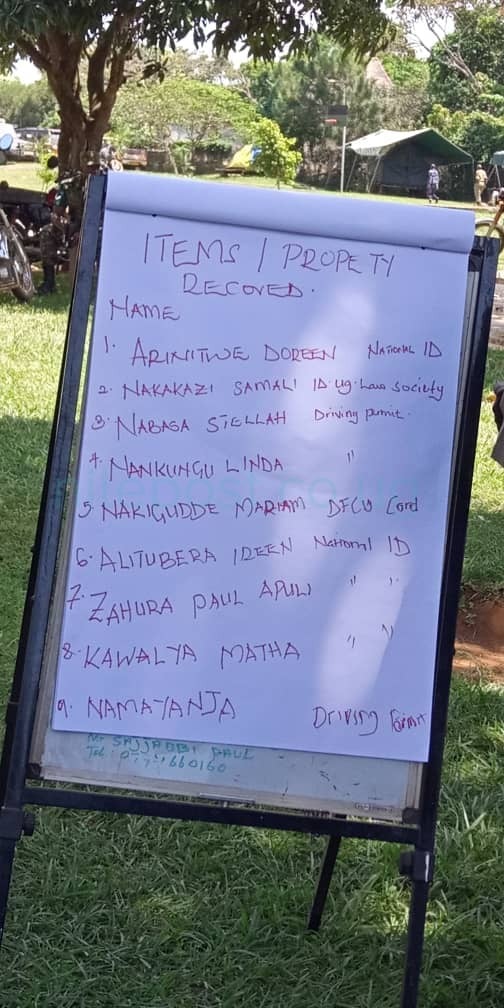 ITEMS / PROPETY
RECOVED.
NAME
1. ARINITWE DOREEN NATIONAL ID
2. NAKAKAZI SAMALI ID ug. Law Society
3. NABAGA STELLAH Driving permit.
4. NANKUNGU LINDA "
5. NAKIGUDDE MARIAM DFCU Card
6. ALITUBERA IREEN National ID
7. ZAHURA PAUL APULI " "
8. KAWALYA MATHA " "
9. NAMAYANJA Driving
SAJJABBI PAUL
Tel: